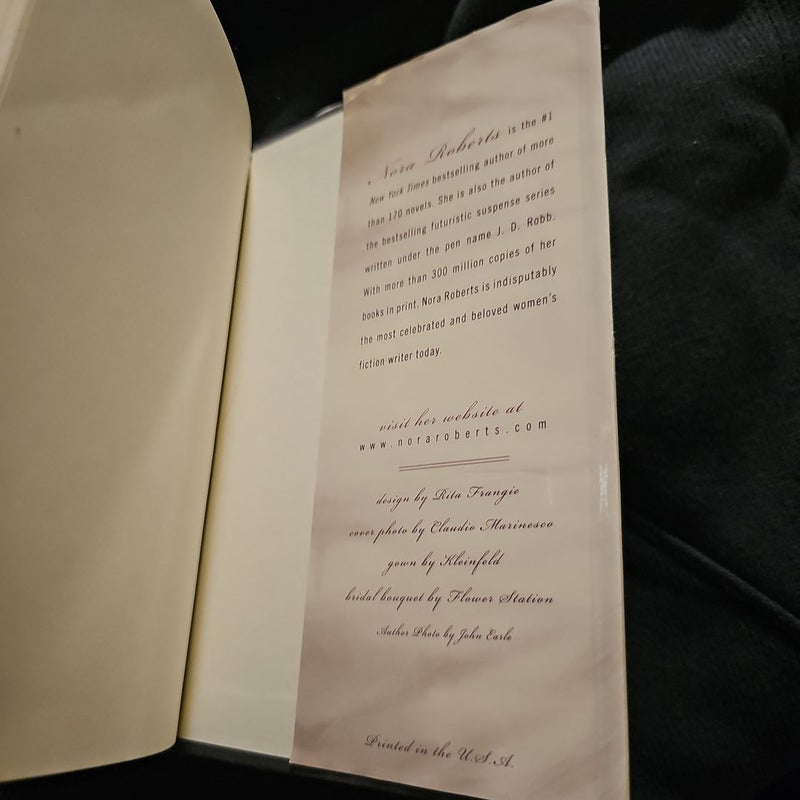 Nora Roberts is the #1
New York Times bestselling author of more
than 170 novels. She is also the author of
the bestselling futuristic suspense series
written under the pen name J. D. Robb.
With more than 300 million copies of her
books in print, Nora Roberts is indisputably
the most celebrated and beloved women's
fiction writer today.
visit her website at
www.noraroberts.com
design by Rita Frangie
cover photo by Claudio Marinesco
gown by Kleinfeld
bridal bouquet by Flower Station
Author Photo by John Earle
Printed in the U.S.A.